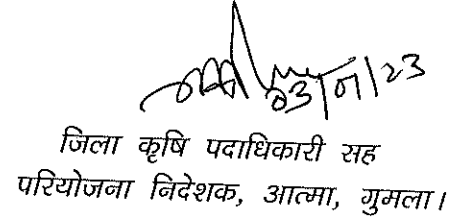 03/01/23
जिला कृषि पदाधिकारी सह
परियोजना निदेशक, आत्मा, गुमला।